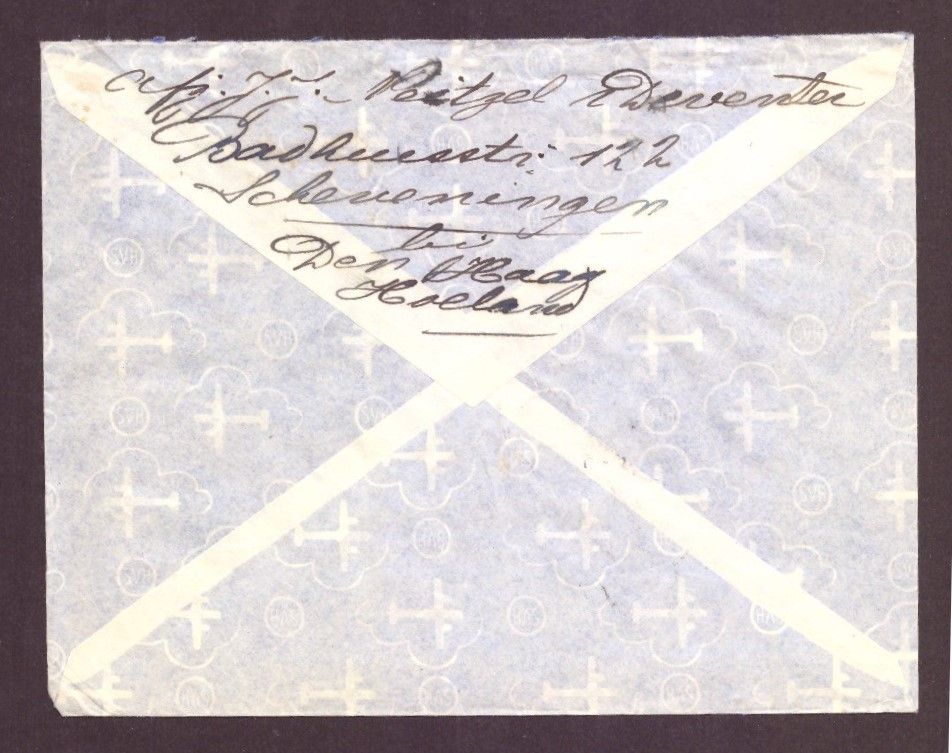 afz. J. J. Ritzel v Deventer
Badhuisstr. 122
Scheveningen
bij
Den Haag
Holland